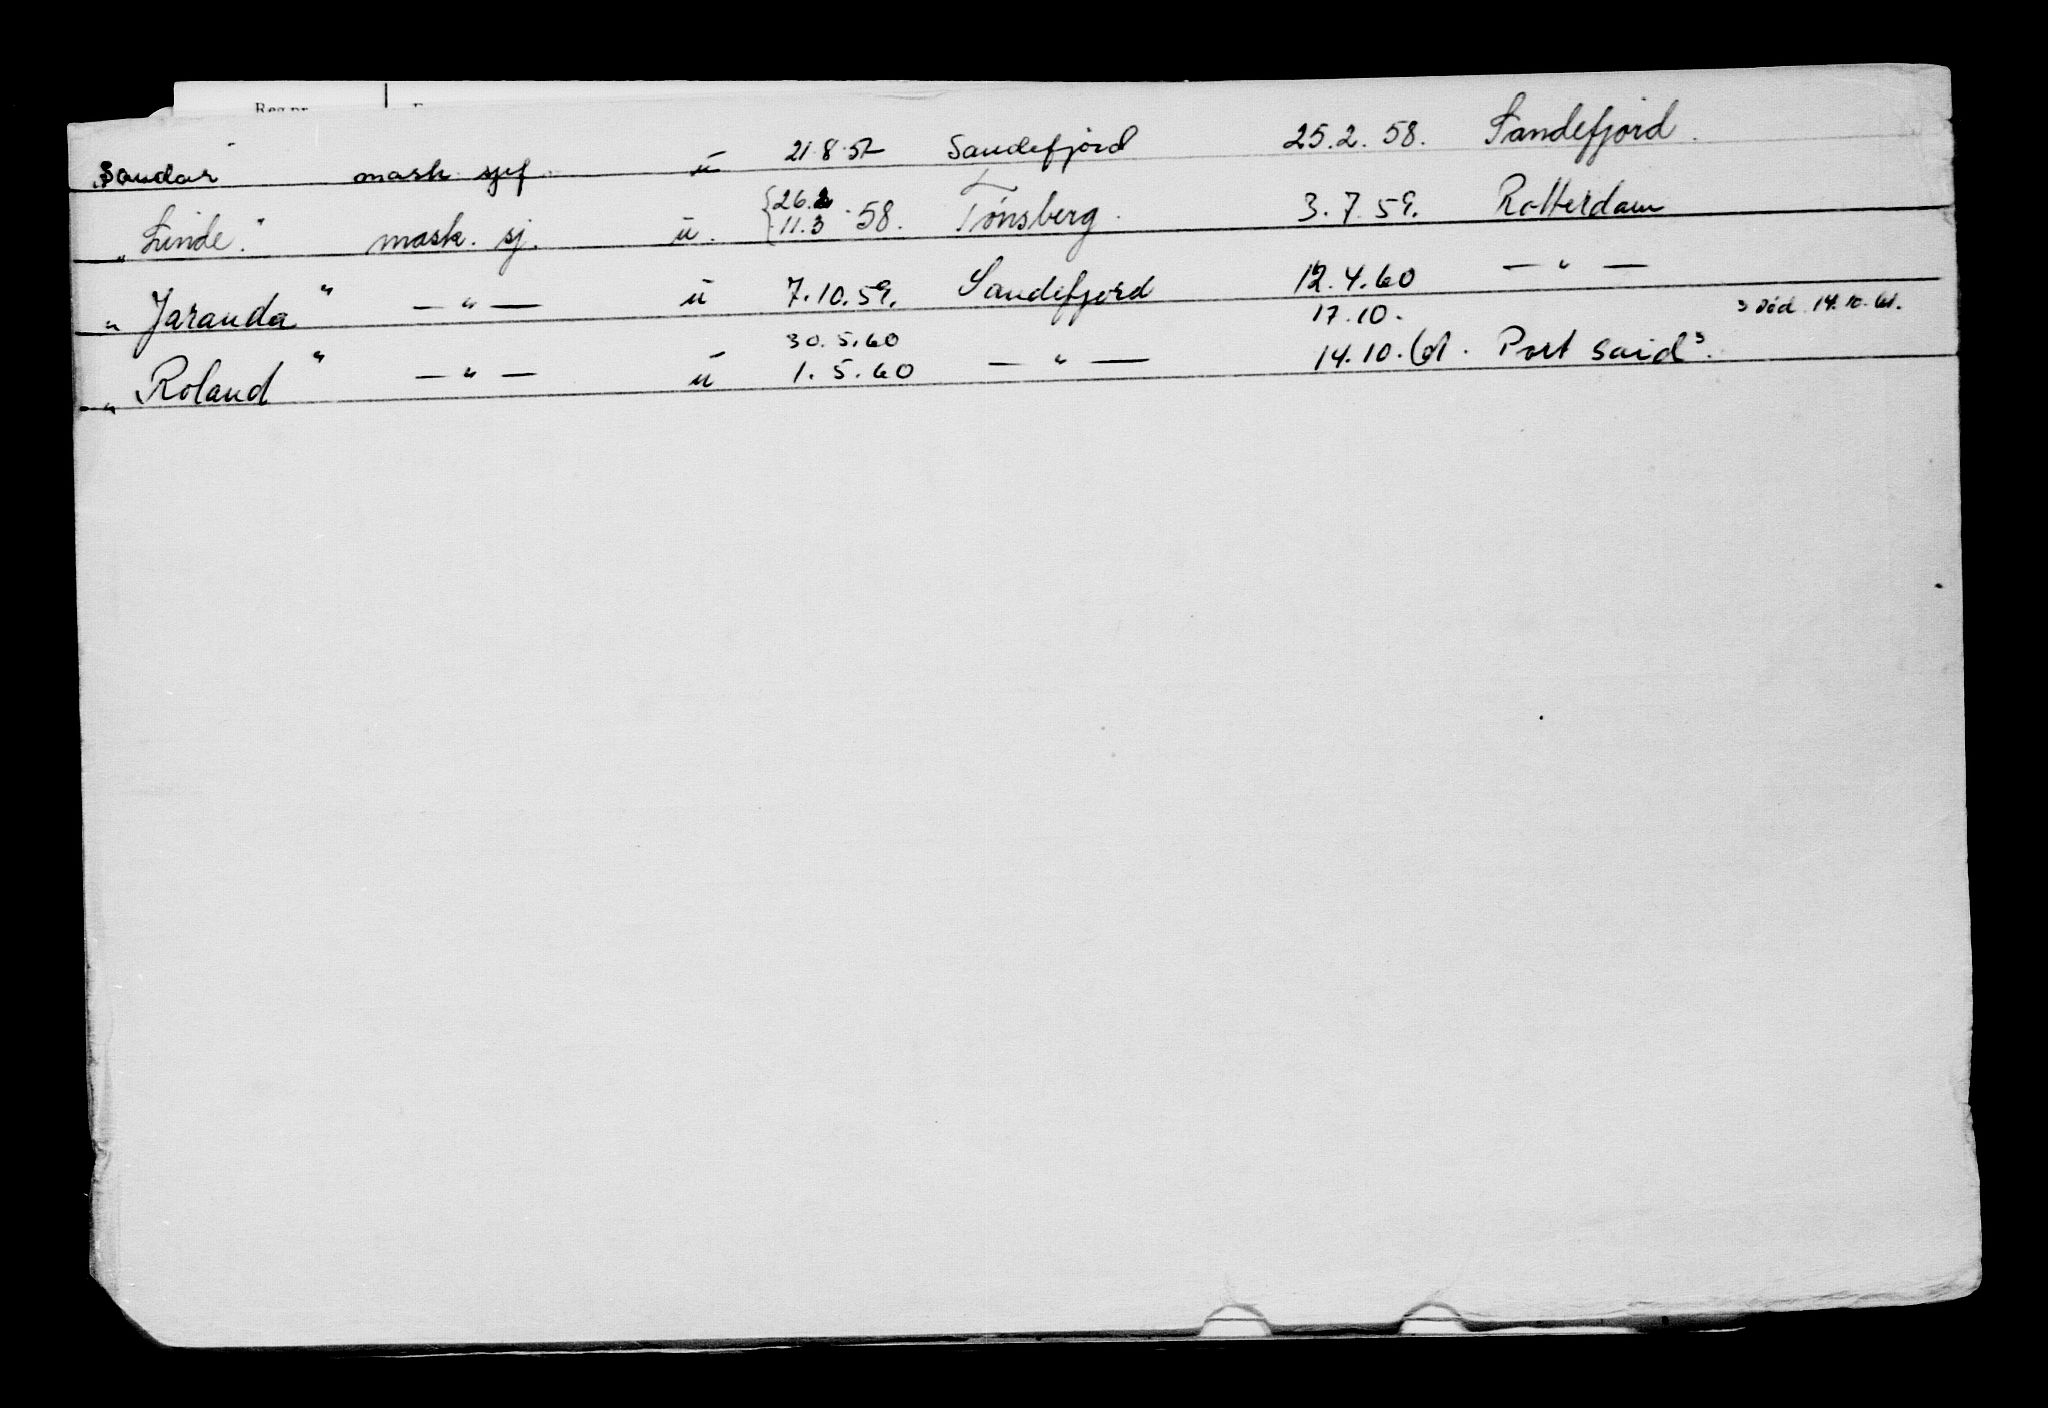 „Sandar" mask sjef u 21.8.57 Sandefjord 25.2.58. Sandefjord.
„Linde." mask. sj. u. {26.2 11.3 .58. Tønsberg. 3.7.59. Rotterdam
„Jaranda" — " — u 7.10.59. Sandefjord 12.4.60 — " —
30.5.60 17.10. ³ død 14.10.61.
„Roland" — " — u 1.5.60 — " — 14.10.61. Port Said³.